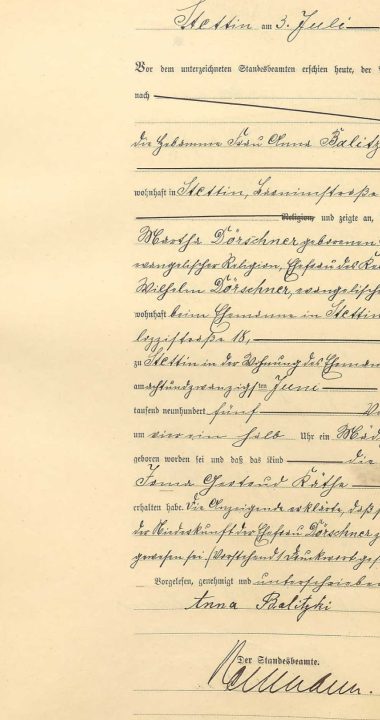 Stettin am 3. Juli
Vor dem unterzeichneten Standesbeamten erschien heute, der
nach
die Hebamme Frau Anna Balitz
wohnhaft in Stettin, Barnimstraße
Religion, und zeigte an,
Martha Dörschner geborenen
evangelischer Religion, Ehefrau des
Wilhelm Dörschner, evangelische
wohnhaft beim Ehemanne in Stettin
straße 18,
zu Stettin in der Wohnung des Eheman
am achtundzwanzigsten Juni
tausend neunhundert fünf
um vier ein halb Uhr ein Mäd
geboren worden sei und daß das Kind die
Irma Gertrud Käthe
erhalten habe. Die Anzeigende erklärte, daß
der Niederkunft der Ehefrau Dörschner
gewesen sei. (Vorstehend 1 Druckwort
Vorgelesen, genehmigt und unterschrieben
Anna Balitzki
Der Standesbeamte.